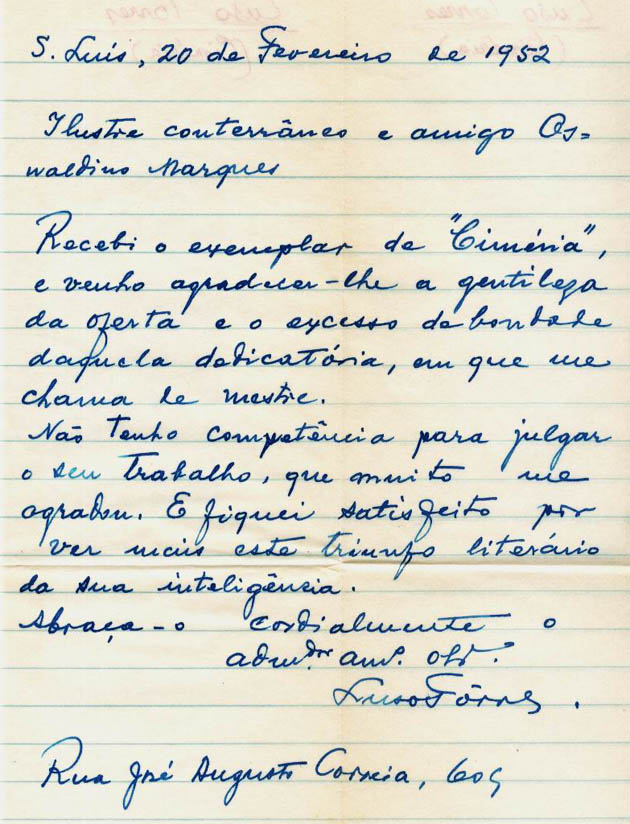 S. Luís, 20 de Fevereiro de 1952
Ilustre conterrâneo e amigo Os=
waldino Marques
Recebi o exemplar de "Ciméria",
e venho agradecer-lhe a gentileza
da oferta e o excesso de bondade
daquela dedicatória, em que me
chama de mestre.
Não tenho competência para julgar
o seu trabalho, que muito me
agradou. E fiquei satisfeito por
ver mais este triunfo literário
da sua inteligência.
Abraça-o cordialmente o
admdor. amº. obº.
Luso Tôrres.
Rua José Augusto Correia, 605